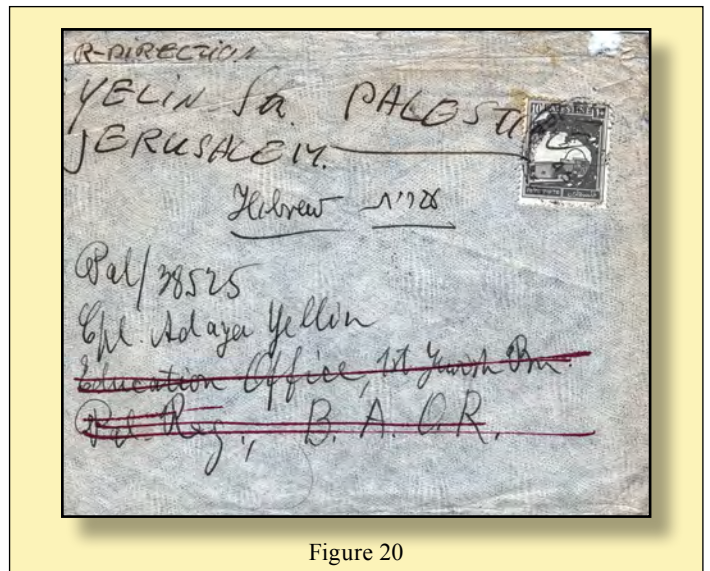 R-DIRECTION
YELIN St. PALESTINE
JERUSALEM.
Hebrew עברית
Pal/38525
Cpl. Adaya Yellin
Education Office, 1st Jewish Bn.
Pal. Reg., B. A. O. R.
Figure 20